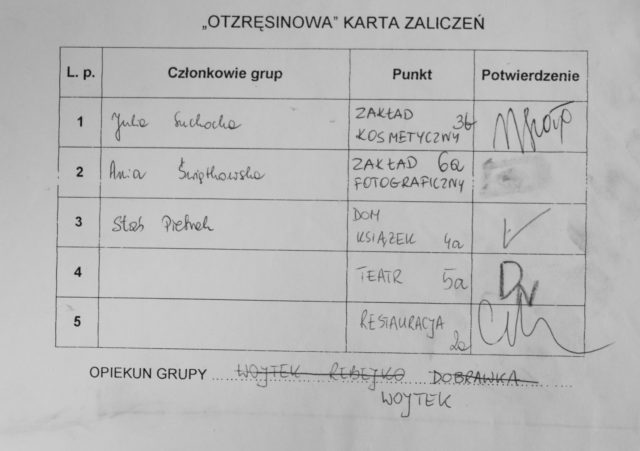 „OTZRĘSINOWA” KARTA ZALICZEŃ
L. p. Członkowie grup Punkt Potwierdzenie
1 Julia Suchocka ZAKŁAD KOSMETYCZNY 3b
2 Ania Świątkowska ZAKŁAD 6a FOTOGRAFICZNY
3 Staś DOM KSIĄŻEK 4a
4 TEATR 5a
5 RESTAURACJA 2a
OPIEKUN GRUPY WOJTEK REBEJKO DOBRAWKA
WOJTEK